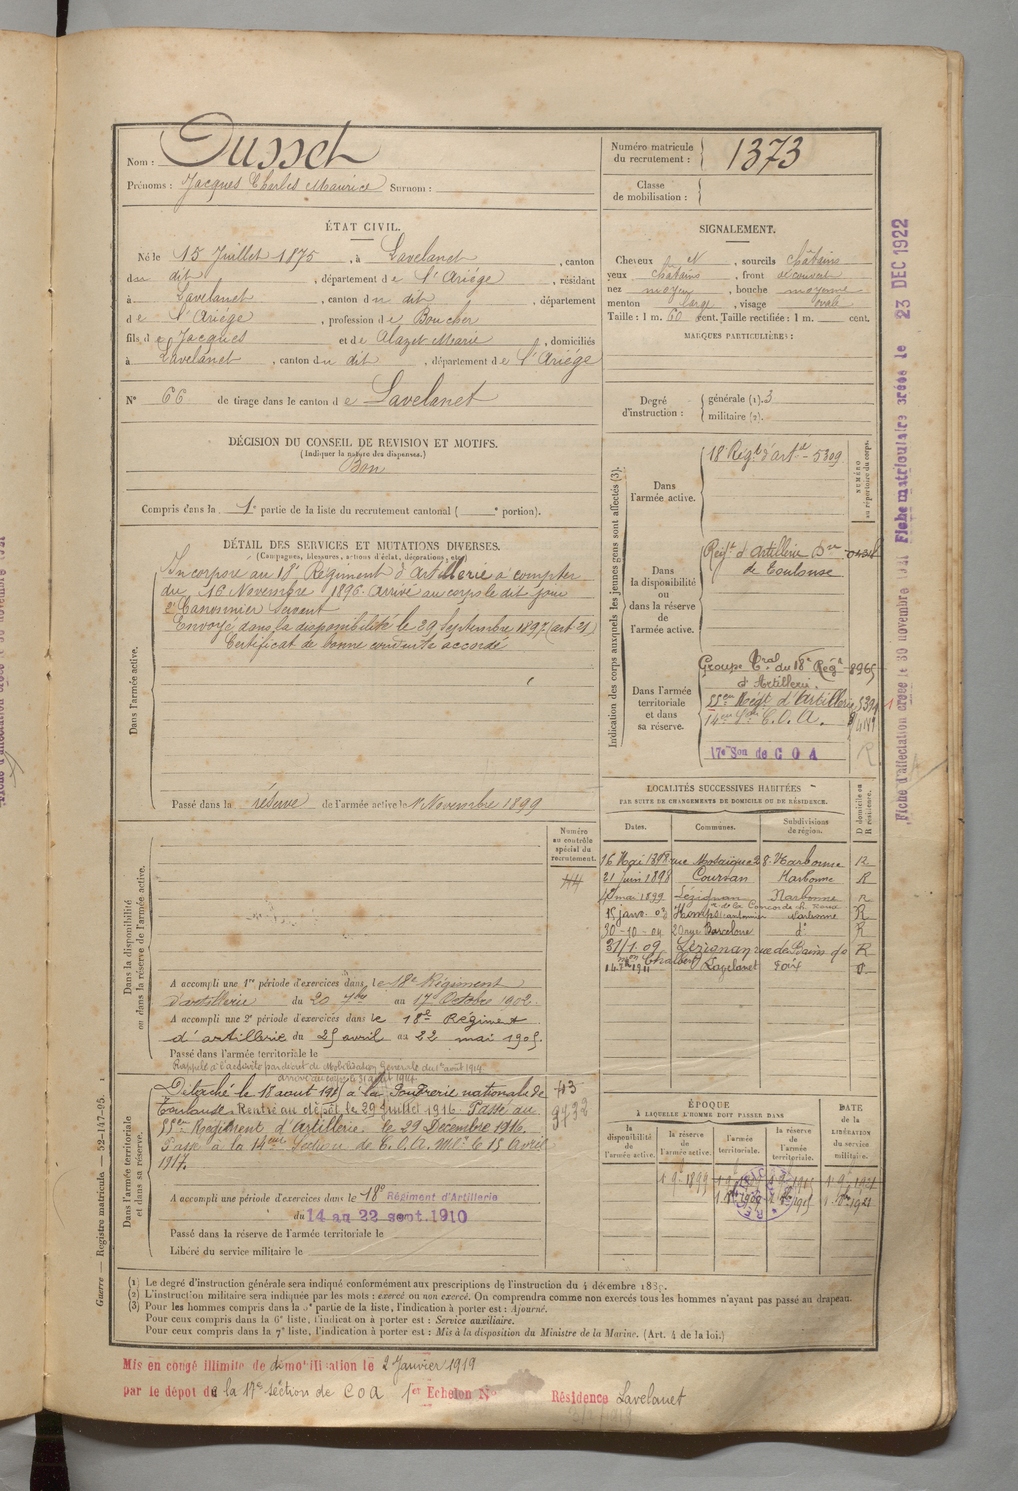 Nom : Dusset
Prénoms : Jacques Charles Maurice Surnom :
Numéro matricule du recrutement : 1373
Classe de mobilisation :
ÉTAT CIVIL.
Né le 15 Juillet 1875, à Lavelanet, canton
du dit, département de l'Ariége, résidant
à Lavelanet, canton du dit, département
de l'Ariége, profession de Boucher
fils de Jacques et de Alazet Marie, domiciliés
à Lavelanet, canton du dit, département de l'Ariége
N° 66 de tirage dans le canton de Lavelanet
SIGNALEMENT.
Cheveux N, sourcils châtains
yeux châtains, front découvert
nez moyen, bouche moyenne
menton large, visage ovale
Taille : 1 m. 60 cent. Taille rectifiée : 1 m. cent.
MARQUES PARTICULIÈRES :
Degré d'instruction : générale (1). 3
militaire (2).
DÉCISION DU CONSEIL DE REVISION ET MOTIFS.
(Indiquer la nature des dispenses.)
Bon
Compris dans la 1e partie de la liste du recrutement cantonal ( e portion).
DÉTAIL DES SERVICES ET MUTATIONS DIVERSES.
(Campagnes, blessures, actions d'éclat, décorations, etc.)
Dans l'armée active.
Incorporé au 18e Régiment d'Artillerie à compter
du 16 Novembre 1896. Arrivé au corps le dit jour
2e Canonnier Servant
Envoyé dans la disponibilité le 29 Septembre 1897 (art. 21)
Certificat de bonne conduite accordé
Passé dans la réserve de l'armée active le 1r Novembre 1899
Indication des corps auxquels les jeunes gens sont affectés (3).
NUMÉRO au répertoire du corps.
Dans l'armée active.
18e Régt d'artie - 5309
Dans la disponibilité ou dans la réserve de l'armée active.
Regt d'Artillerie
de Toulouse
Dans l'armée territoriale et dans sa réserve.
Groupe Tral du 18e Régt 8965
d'Artillerie
55e Régt d'Artillerie
14e Son C.O.A.
17e Son de COA
R
LOCALITÉS SUCCESSIVES HABITÉES
PAR SUITE DE CHANGEMENTS DE DOMICILE OU DE RÉSIDENCE.
Dates. Communes. Subdivisions de région. D domicile ou R résidence.
16 Mai 1898 rue Mosaique 28 Narbonne R
21 juin 1898 Coursan Narbonne R
mars 1899 Lézignan Narbonne R
15 janv. 03 Homps Narbonne R
30-10-04 20 rue Barcelone do R
31/1.09 Lézignan rue des Bains do R
1911 Lavelanet Foix D
Dans la disponibilité ou dans la réserve de l'armée active.
Numéro au contrôle spécial du recrutement.
A accompli une 1re période d'exercices dans le 18e Régiment
d'artillerie du 20 7bre au 17 Octobre 1902.
A accompli une 2e période d'exercices dans le 18e Régiment
d'artillerie du 25 avril au 22 mai 1905.
Passé dans l'armée territoriale le
Rappelé à l'activité par décret de Mobilisation Générale du 1er août 1914
Arrivé au corps le 31 août 1914.
Dans l'armée territoriale et dans sa réserve.
Détaché le 18 août 1915 à la Poudrerie nationale de 43
Toulouse. Rentré au dépôt le 29 Juillet 1916. Passé au
55e Régiment d'Artillerie le 29 Décembre 1916.
Passé à la 14eme Section de C.O.A. le 15 Avril
1917.
A accompli une période d'exercices dans le 18e Régiment d'Artillerie
du 14 au 22 sept. 1910
Passé dans la réserve de l'armée territoriale le
Libéré du service militaire le
ÉPOQUE
À LAQUELLE L'HOMME DOIT PASSER DANS
DATE DE LA LIBÉRATION du service militaire.
la disponibilité de l'armée active. la réserve de l'armée active. l'armée territoriale. la réserve de l'armée territoriale.
1 9 1899
(1) Le degré d'instruction générale sera indiqué conformément aux prescriptions de l'instruction du 4 décembre 1889.
(2) L'instruction militaire sera indiquée par les mots : exercé ou non exercé. On comprendra comme non exercés tous les hommes n'ayant pas passé au drapeau.
(3) Pour les hommes compris dans la 5e partie de la liste, l'indication à porter est : Ajourné.
Pour ceux compris dans la 6e liste, l'indication à porter est : Service auxiliaire.
Pour ceux compris dans la 7e liste, l'indication à porter est : Mis à la disposition du Ministre de la Marine. (Art. 4 de la loi.)
Mis en congé illimité de démobilisation le 2 Janvier 1919
par le dépôt du la 17e section de COA 1er Echelon N° Résidence Lavelanet
Guerre — Registre matricule — 52-147-95.
Fiche matriculaire créée le 23 DEC 1922
Fiche d'affectation créée le 30 novembre 1921